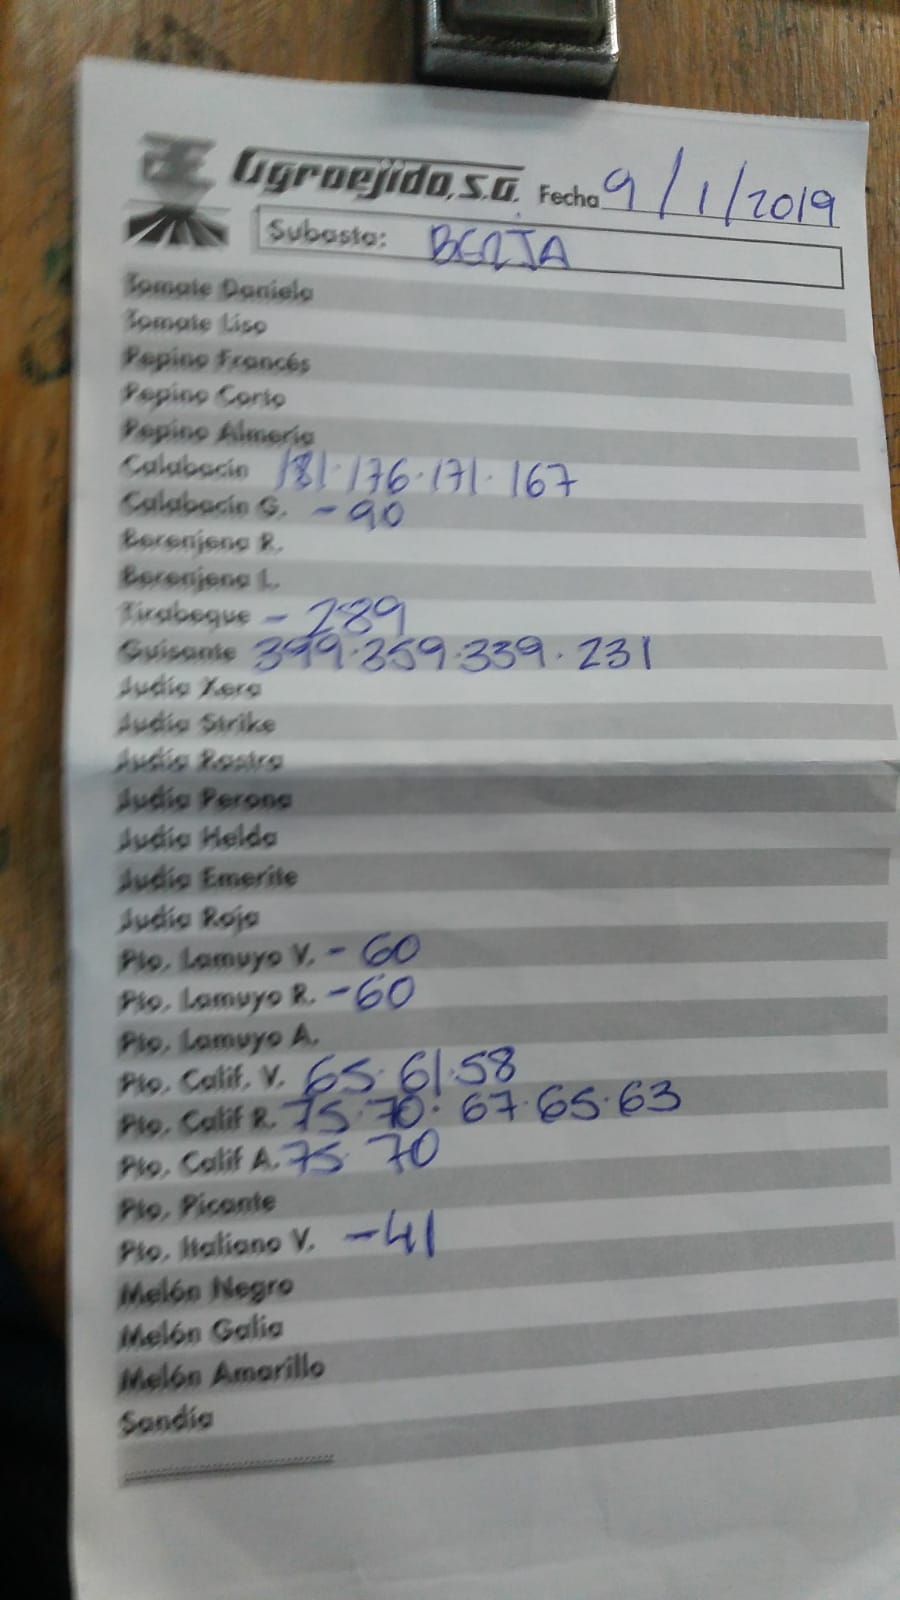 Agroejido, S.A. Fecha 9/1/2019
Subasta: BERJA
Tomate Daniela
Tomate Liso
Pepino Francés
Pepino Corto
Pepino Almería
Calabacín 181·176·171·167
Calabacín G. -90
Berenjena R.
Berenjena L.
Tirabeque - 289
Guisante 399·359·339·231
Judía Xera
Judía Strike
Judía Rastra
Judía Perona
Judía Helda
Judía Emerite
Judía Roja
Pto. Lamuyo V. - 60
Pto. Lamuyo R. -60
Pto. Lamuyo A.
Pto. Calif. V. 65·61·58
Pto. Calif R. 75·70·67·65·63
Pto. Calif A. 75·70
Pto. Picante
Pto. Italiano V. -41
Melón Negro
Melón Galia
Melón Amarillo
Sandía